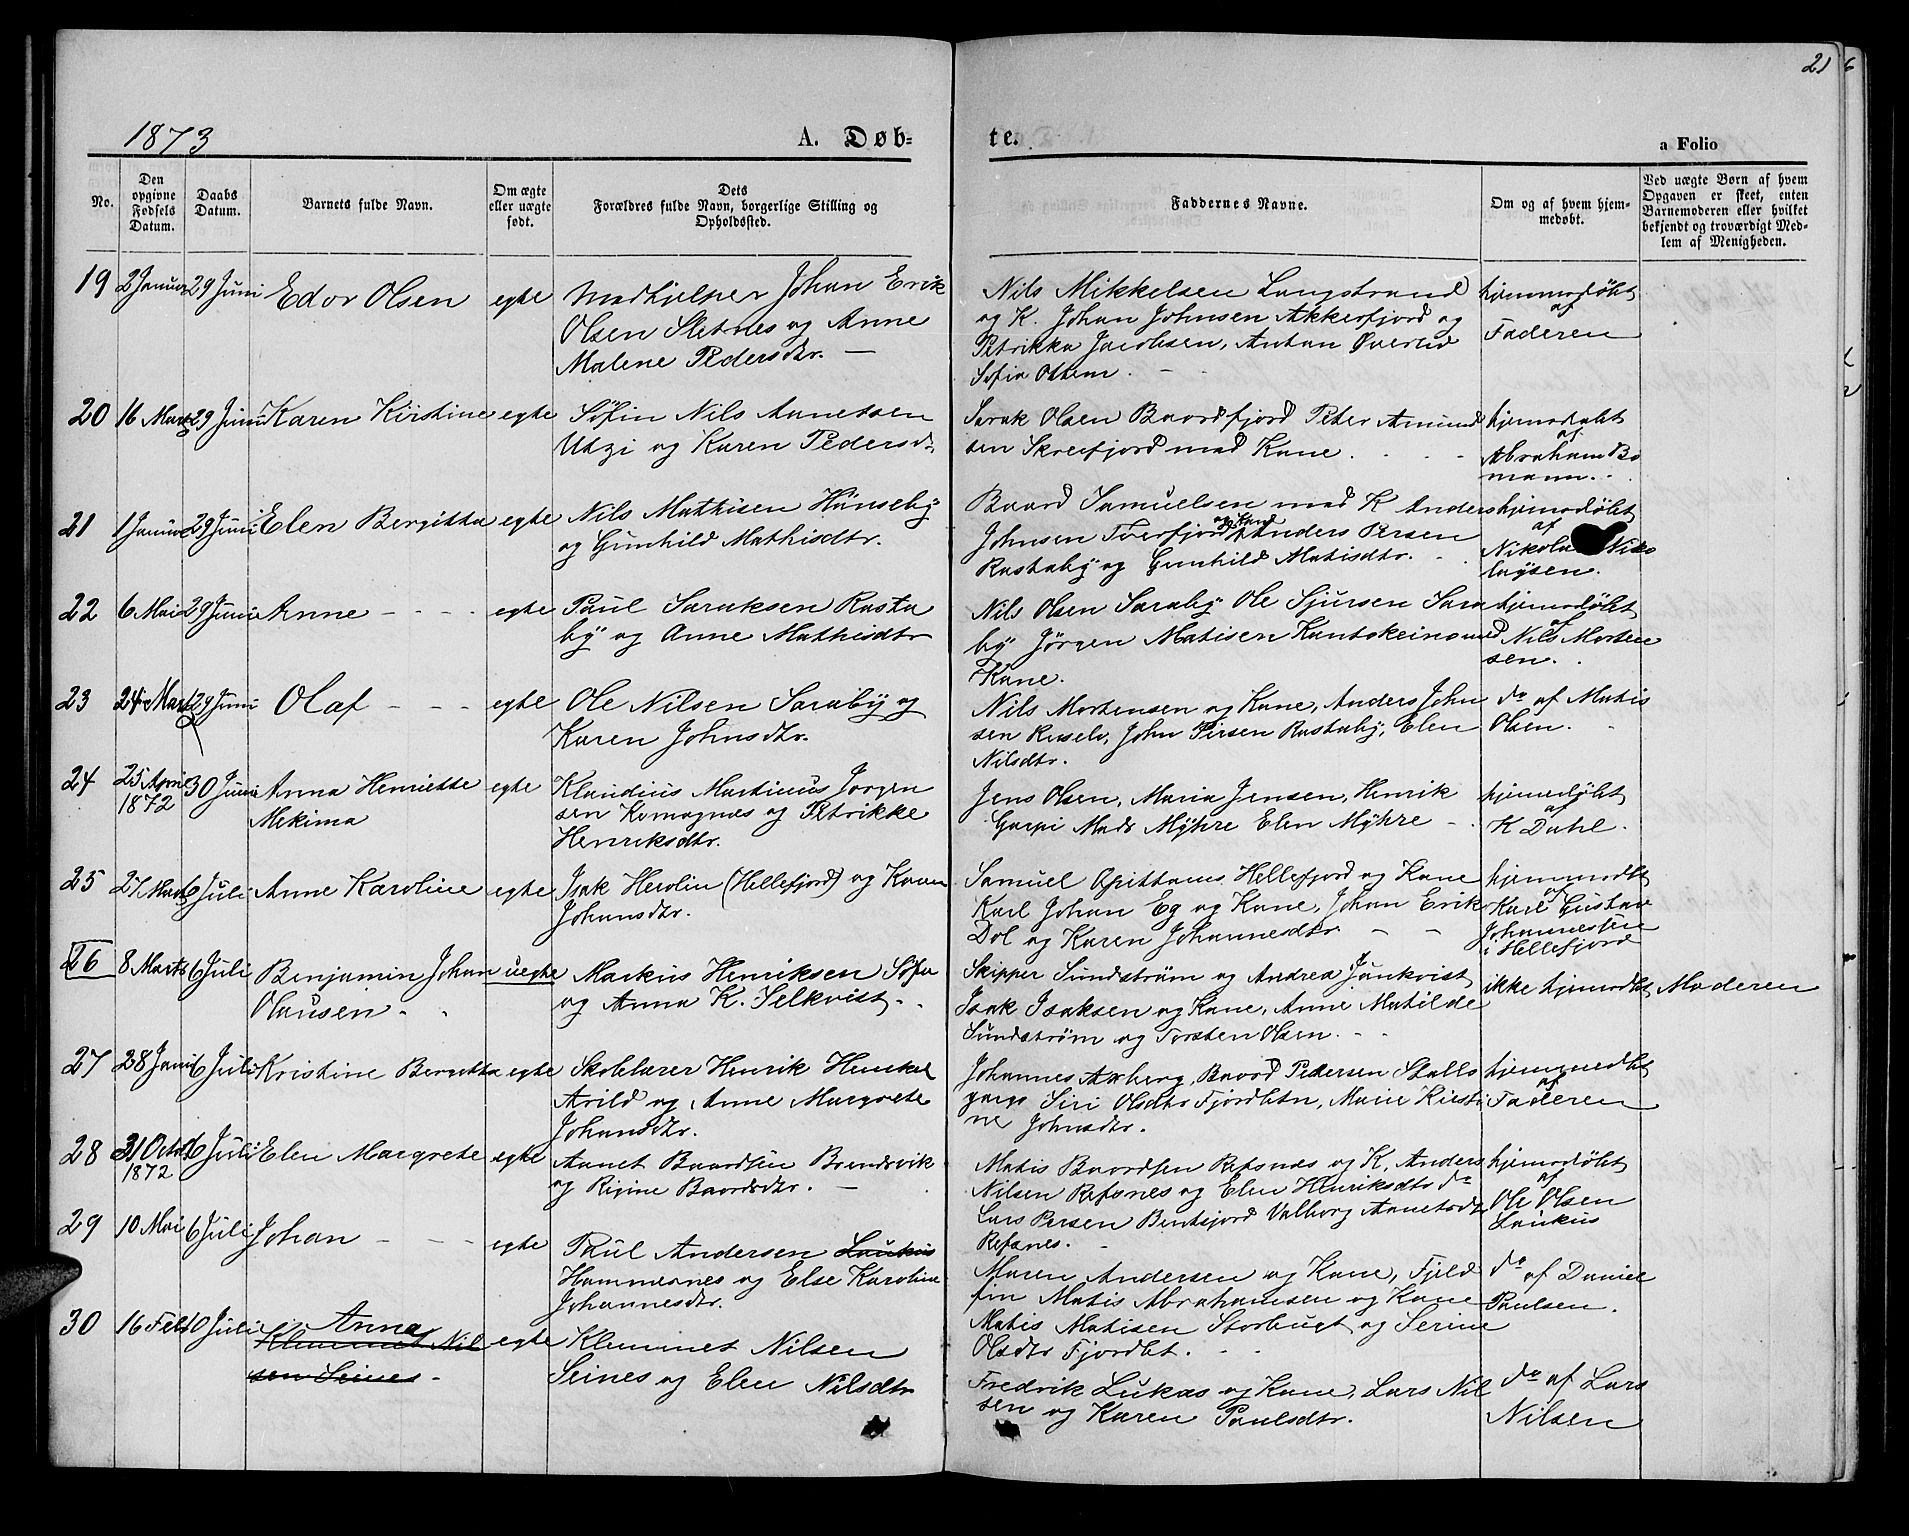 21
6
1873
A. Døb-
te.
a Folio
No.
Den opgivne Fødsels Datum.
Daabs Datum.
Barnets fulde Navn.
Om ægte eller uægte født.
Dets
Forældres fulde Navn, borgerlige Stilling og
Opholdssted.
Faddernes Navne.
Om og af hvem hjem-
medøbt.
Ved uægte Børn af hvem
Opgaven er skeet, enten
Barnemoderen eller hvilket
bekjendt og troværdigt Med-
lem af Menigheden.
19 2 Januar 29 Juni Edor Olsen egte Madhjelper Johan Erik
Olsen Sletnes og Anne
Malene Pedersdtr. —
Nils Mikkelsen Langstrand
og K. Johan Johnsen Akkerfjord og
Petrikka Jacobsen, Anton
Sofia
hjemmedøbt
af
Faderen
20 16 Marts 29 Juni Karen Kirstine egte Søfin Nils Annetsen
Utzi og Karen Pedersd.
Isak Olsen Baardfjord Peter Amund
sen Skreifjord med Kane.
hjemedøbt
af
Abraham Bo
mann.
21 1 Januar 29 Juni Elen Bergitta egte Nils Mathisen Hønseby
og Gunhild Mathisdtr.
Baard Samuelsen med K Anders
Johnsen Tverfjord og Kane Anders Persen
Rastaby og Gunhild Matisdtr.
hjemedøbt
af
Nikola Niko
laysen.
22 6 Mai 29 Juni Anne egte Paul Saraksen Rasta
by og Anne Mathisdtr
Nils Olsen Saraby Ole Sjursen Sara
by Jørgen Matisen Kautokeino med
Kane.
hjemedøbt
af
Nils Morten
sen.
23 24 Marts 29 Juni Olaf egte Ole Nilsen Saraby og
Karen Johnsdtr.
Nils Mortensen og Kane, Anders John
sen Russelv, John Persen Rastaby, Elen
Nilsdtr.
do af Matis
Olsen.
24 25 April
1872 30 Juni Anna Henriette
Mekima egte Klaudius Martinus Jørgen
sen Komagnes og Petrikke
Henriksdtr.
Jens Olsen, Maria Jensen, Henrik
Garpi Mads Myhre Elen Myhre
hjemedøbt
af
K Dahl.
25 27 Marts 6 Juli Anne Karoline egte Isak Herolin (Hellefjord) og Karen
Johansdtr.
Samuel Hellefjord og Kane
Karl Johan Eg og Kane, Johan Erik
Dol og Karen Johannesdtr.
hjemmedbt
af
Karl Gustav
Johannessen
i Hellefjord
26 8 Marts 6 Juli Benjamin Johan
Olausen uegte Markus Henriksen Søfin
og Anna K. Selkvist.
Skipper Sundstrøm og Andrea Junkvist
Isak Isaksen og Kane, Anne Matilde
Sundstrøm og Torsten Olsen.
ikke hjemedbt Moderen
27 28 Januar 6 Juli Kristine Bergitta egte Skolelærer Henrik Henrksen
Arild og Anne Margrete
Johansdtr.
Johannes Aarberg, Baard Pedersen Stalls
garge Siri Olsdtr Fjordbtn, Marie Kirsti
ne Johnsdtr.
hjemmedbt
af
Faderen
28 31 Octobr
1872 6 Juli Elen Margrete egte Annet Baardsen Brendsvik
og Regine Baardsdtr. —
Matis Baardsen Refsnes og K, Anders
Nilsen Refsnes og Elen Henriksdtr do
Lars Persen Bentsjord Valborg Annetsdtr
Refsnes.
hjemedøbt
af
Ole Olsen
Laukus
29 10 Mai 6 Juli Johan egte Paul Andersen Laukus
Hammernes og Else Karoline
Johannesdtr.
Maren Andersen og Kane, Fjeld
fin Matis Abrahamsen og Kane
Matis Matisen Storbugt og Serine
Olsdtr Fjordbt.
do af Daniel
Paulsen.
30 16 Feb 10 Juli Anna
Klemmet Nil
sen Seines egte Klemmet Nilsen
Seines og Elen Nilsdtr
Fredrik Lukas og Kane, Lars Nil
sen og Karen Paulsdtr.
do af Lars
Nilsen